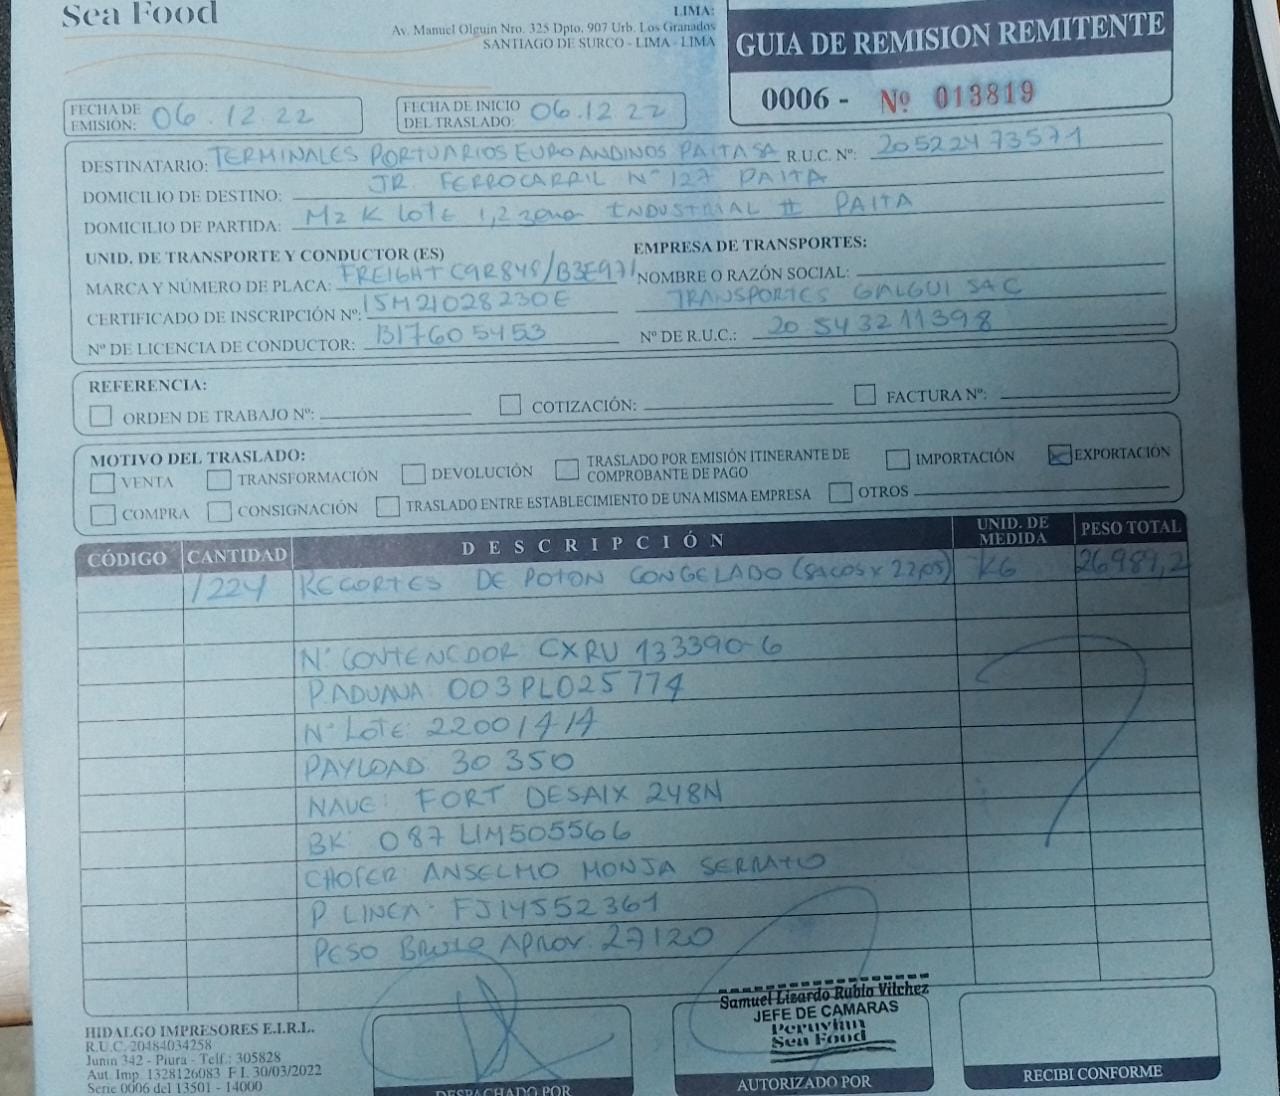 Sea Food
LIMA:
Av. Manuel Olguin Nro. 325 Dpto. 907 Urb. Los Granados
SANTIAGO DE SURCO - LIMA - LIMA
GUIA DE REMISION REMITENTE
0006 - Nº 013819
FECHA DE EMISIÓN: 06.12.22
FECHA DE INICIO DEL TRASLADO: 06.12.22
DESTINATARIO: TERMINALES PORTUARIOS EUROANDINOS PAITA SA R.U.C. Nº: 20522473571
DOMICILIO DE DESTINO: JR. FERROCARRIL Nº 127 PAITA
DOMICILIO DE PARTIDA: Mz K lote 1,2 zona INDUSTRIAL II PAITA
UNID. DE TRANSPORTE Y CONDUCTOR (ES)
EMPRESA DE TRANSPORTES:
MARCA Y NÚMERO DE PLACA: FREIGHT C9R848/B3E971
NOMBRE O RAZÓN SOCIAL:
CERTIFICADO DE INSCRIPCIÓN Nº: 15M21028230E
TRANSPORTES GALGUI SAC
Nº DE LICENCIA DE CONDUCTOR: B17605453
Nº DE R.U.C.: 20543211398
REFERENCIA:
ORDEN DE TRABAJO Nº:
COTIZACIÓN:
FACTURA Nº:
MOTIVO DEL TRASLADO:
VENTA
TRANSFORMACIÓN
DEVOLUCIÓN
TRASLADO POR EMISIÓN ITINERANTE DE
COMPROBANTE DE PAGO
IMPORTACIÓN
EXPORTACIÓN
COMPRA
CONSIGNACIÓN
TRASLADO ENTRE ESTABLECIMIENTO DE UNA MISMA EMPRESA
OTROS
CÓDIGO CANTIDAD DESCRIPCIÓN UNID. DE MEDIDA PESO TOTAL
1224 RECORTES DE POTON CONGELADO (SACOS x 22,05) KG 26989,2
Nº CONTENEDOR: CXRU 133390-6
P. ADUANA: 003PL025774
Nº Lote: 22001414
PAYLOAD: 30 350
NAVE: FORT DESAIX 248N
BK: 087LIM505566
CHOFER: ANSELMO MONJA SERRATO
P LINEA: FJ14552361
PESO BRUTO APROX. 27120
HIDALGO IMPRESORES E.I.R.L.
R.U.C. 20484034258
Junin 342 - Piura - Telf.: 305828
Aut. Imp. 1328126083 F.I. 30/03/2022
Serie 0006 del 13501 - 14000
DESPACHADO POR
Samuel Lizardo Rubio Vilchez
JEFE DE CAMARAS
Peruvian
Sea Food
AUTORIZADO POR
RECIBI CONFORME